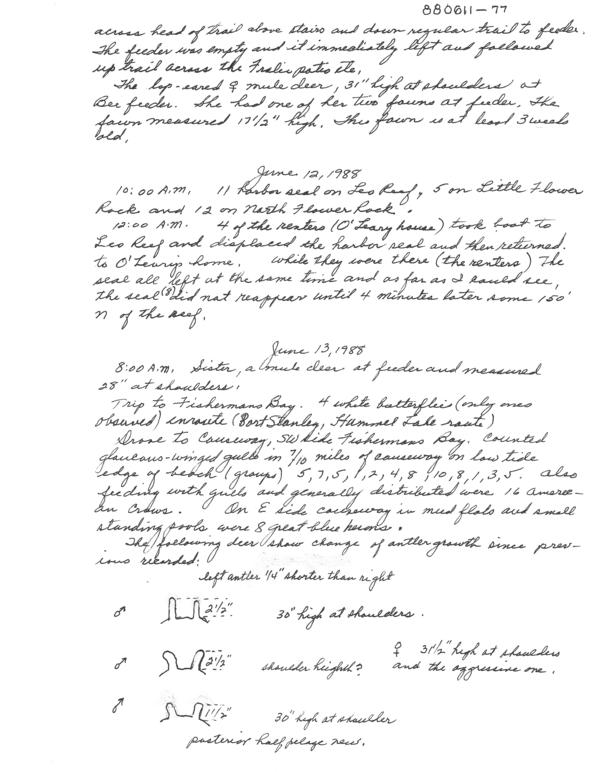 880611-77
across head of trail above stairs and down regular trail to feeder.
The feeder was empty and it immediately left and followed
up trail across the Fralic patio etc.
The lop-eared ♀ mule deer, 31" high at shoulders at
Bee feeder. She had one of her two fawns at feeder. The
fawn measured 17½" high. This fawn is at least 3 weeks
old.
June 12, 1988
10:00 A.M. 11 harbor seal on Leo Reef, 5 on Little Flower
Rock and 12 on North Flower Rock.
12:00 A.M. 4 of the renters (O'Leary house) took boat to
Leo Reef and displaced the harbor seal and then returned
to O'Learys home. While they were there (the renters) The
seal all left at the same time and as far as I could see,
the seal (8) did not reappear until 4 minutes later some 150'
N of the reef.
June 13, 1988
8:00 A.M. Sister, a mule deer at feeder and measured
28" at shoulders.
Trip to Fishermans Bay. 4 white butterflies (only ones
observed) enroute (Port Stanley, Hummel Lake route)
Drove to Causeway, SW side Fishermans Bay. Counted
glaucous-winged gulls in 7/10 miles of causeway on low tide
edge of beach (groups) 5, 7, 5, 1, 2, 4, 8, 10, 8, 1, 3, 5. Also
feeding with gulls and generally distributed were 16 americ-
an crows. On E side causeway in mud flats and small
standing pools were 8 great blue herons.
The following deer show change of antler growth since prev-
ious recorded:
left antler ¼" shorter than right
♂ 2½" 30" high at shoulders.
♂ 2½" shoulder height? ♀ 31½" high at shoulders
and the aggressive one.
♂ 1½" 30" high at shoulder
posterior half pelage new.